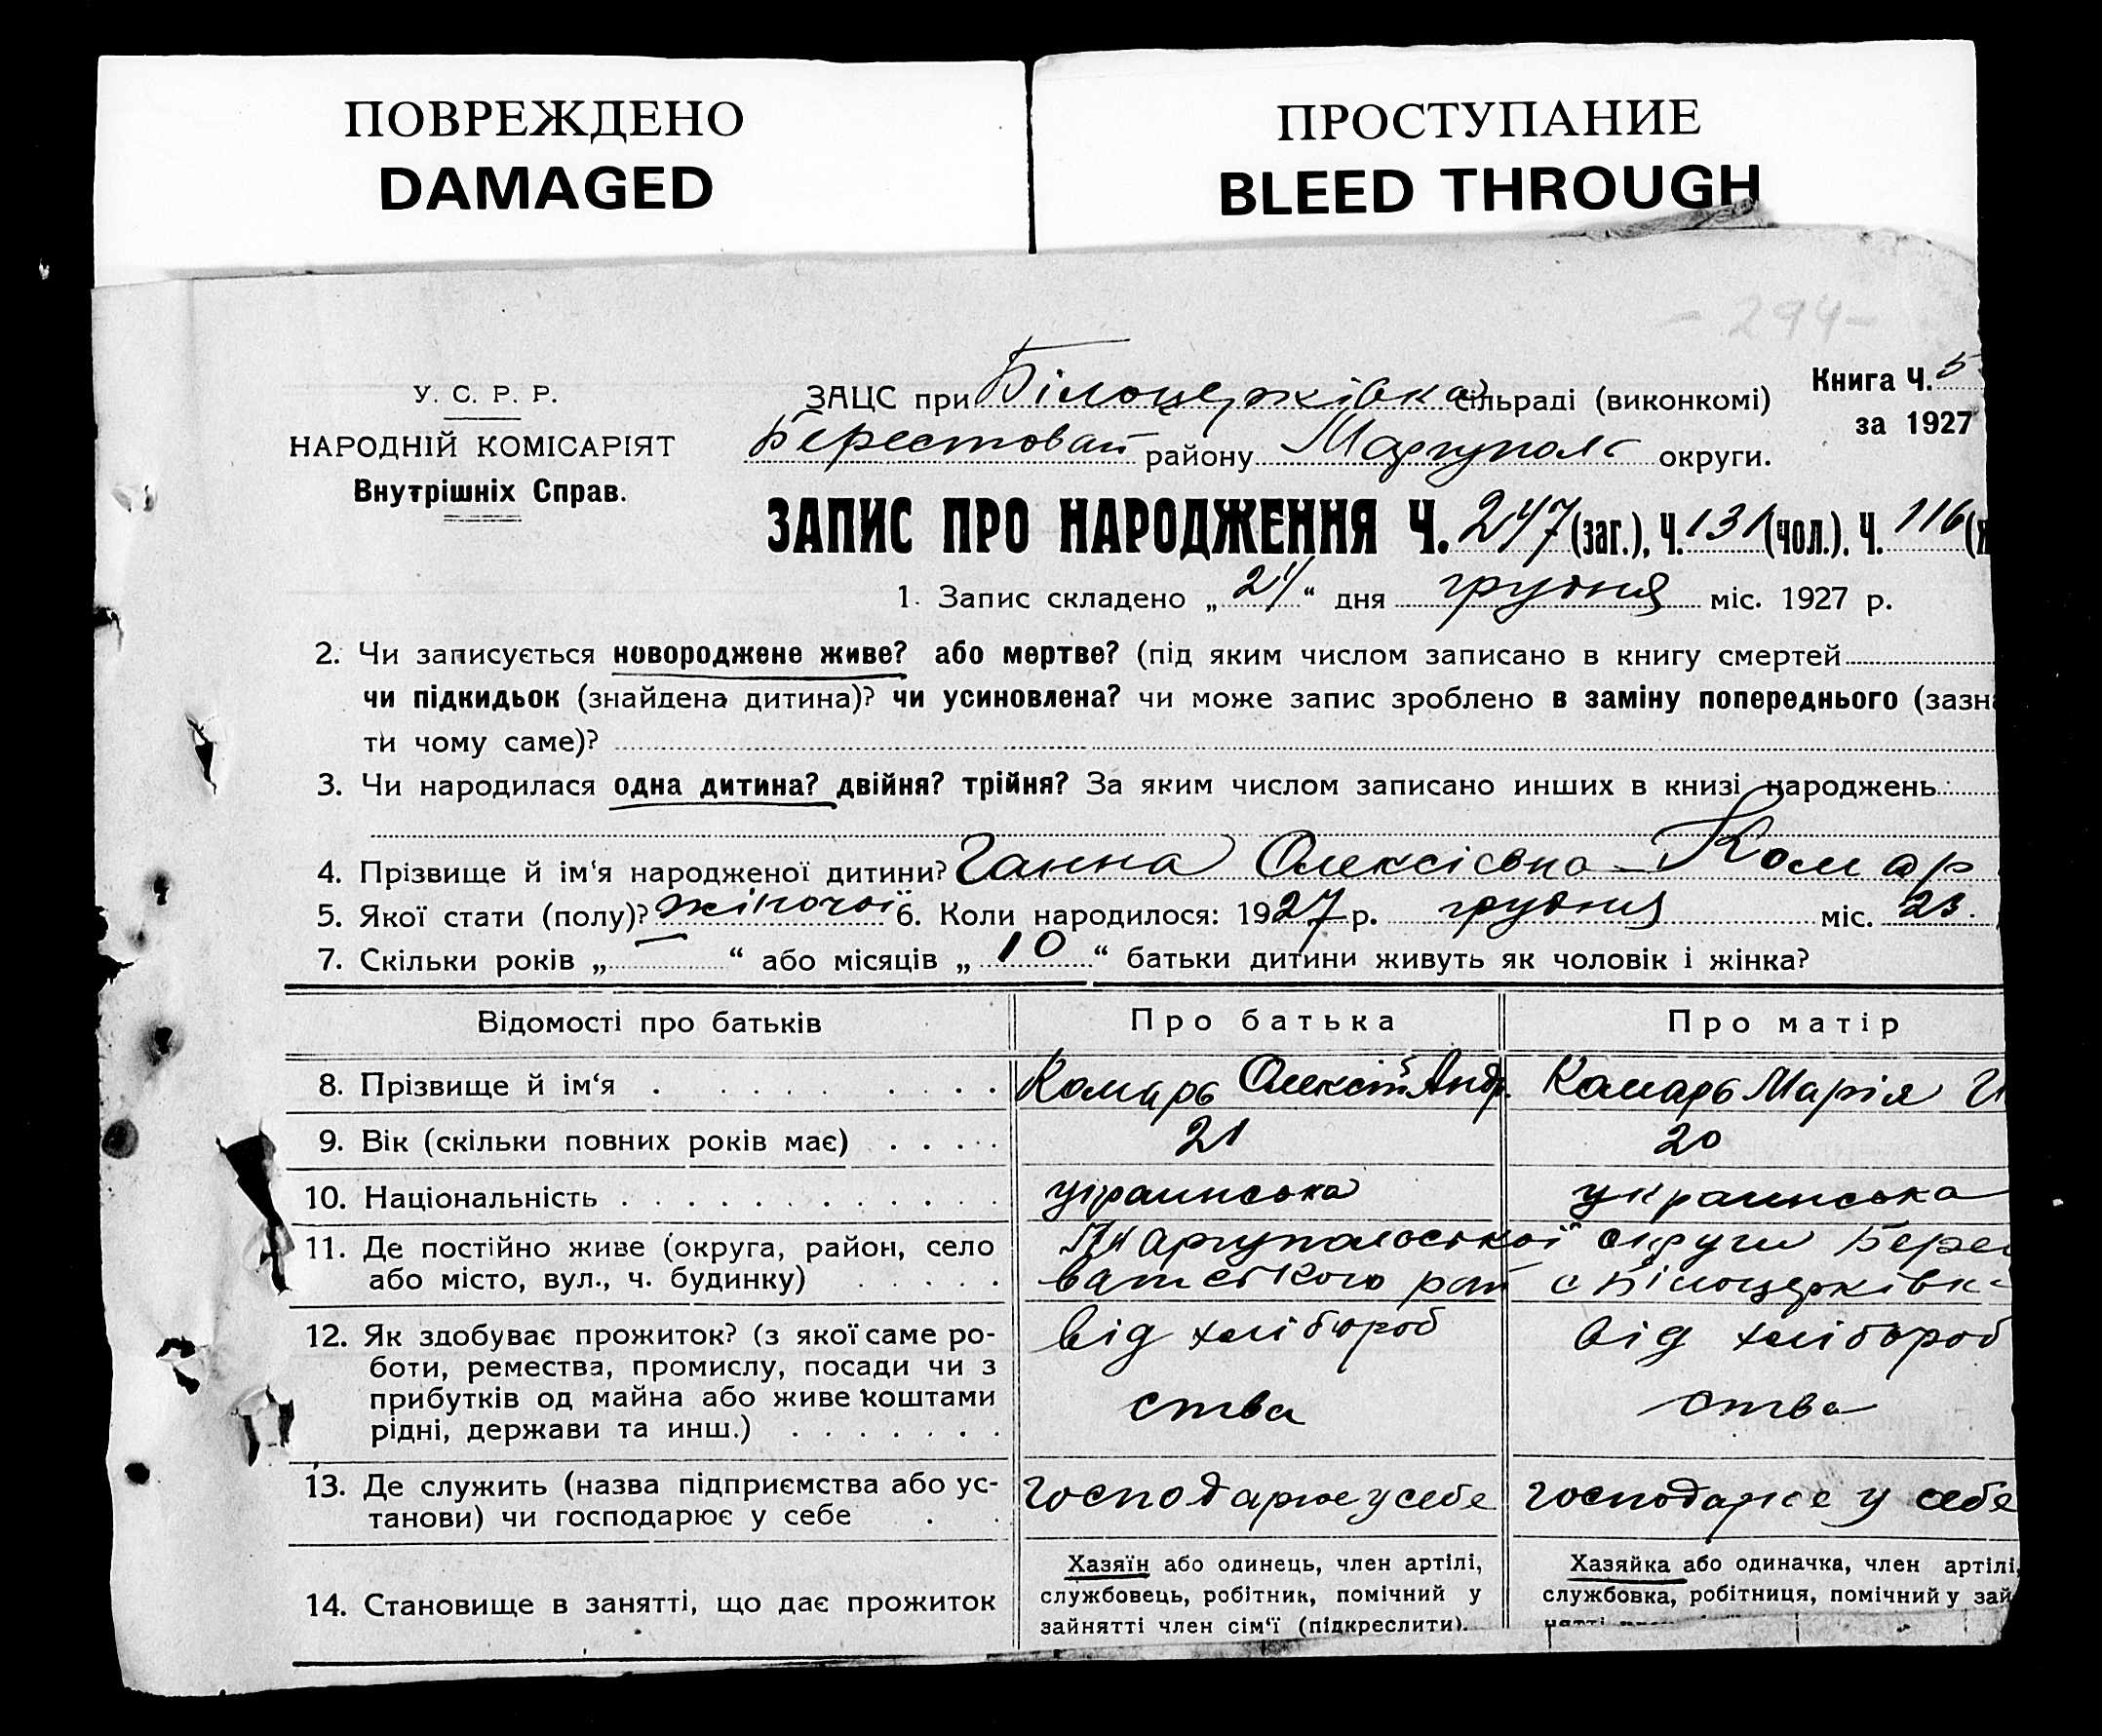 ПОВРЕЖДЕНО
DAMAGED
ПРОСТУПАНИЕ
BLEED THROUGH
- 294 -
У. С. Р. Р.
НАРОДНІЙ КОМІСАРІЯТ
Внутрішніх Справ.
Книга Ч. 5
за 1927
ЗАЦС при Білоцерківка сільраді (виконкомі)
Берестоват району Маріуполь округи.
ЗАПИС ПРО НАРОДЖЕННЯ Ч. 247 (заг.), Ч. 131 (чол.). Ч. 116 (ж
1. Запис складено „ 21 “ дня грудня міс. 1927 р.
2. Чи записується новороджене живе? або мертве? (під яким числом записано в книгу смертей
чи підкидьок (знайдена дитина)? чи усиновлена? чи може запис зроблено в заміну попереднього (зазна
ти чому саме)?
3. Чи народилася одна дитина? двійня? трійня? За яким числом записано инших в книзі народжень
4. Прізвище й ім‘я народженої дитини? Ганна Олексієвна Комар
5. Якої стати (полу)? жіночої 6. Коли народилося: 1927 р. грудня міс. 23.
7. Скільки років „ — “ або місяців „ 10 “ батьки дитини живуть як чоловік і жінка?
Відомості про батьків Про батька Про матір
8. Прізвище й ім‘я Комарь Олексій Андр. Комарь Марія
9. Вік (скільки повних років має) 21 20
10. Національність украинська украинська
11. Де постійно живе (округа, район, село Маріупольської округи Берес
або місто, вул., ч. будинку) ватського рай с Білоцерківк
12. Як здобуває прожиток? (з якої саме ро- від хлібороб від хлібороб
боти, ремества, промислу, посади чи з
прибутків од майна або живе коштами ства ства
рідні, держави та инш.)
13. Де служить (назва підприємства або ус- господарює у себе господарює у себе
танови) чи господарює у себе
14. Становище в занятті, що дає прожиток
Хазяїн або одинець, член артілі,
службовець, робітник, помічний у
зайнятті член сім‘ї (підкреслити).
Хазяйка або одиначка, член артілі,
службовка, робітниця, помічний у зай-